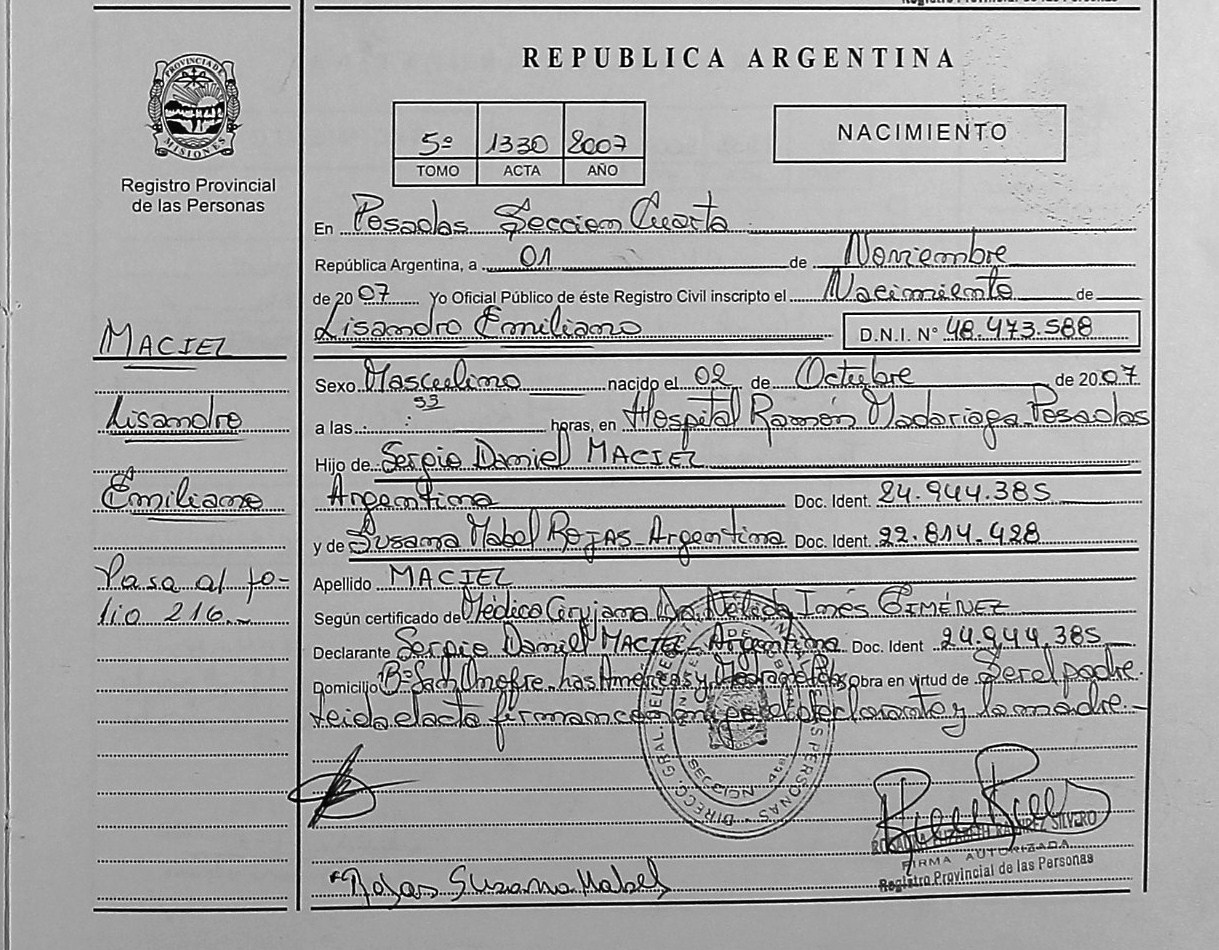 REPUBLICA ARGENTINA
PROVINCIA DE
MISIONES
Registro Provincial
de las Personas
5º 1330 2007
TOMO ACTA AÑO
NACIMIENTO
En Posadas Seccion Cuarta
República Argentina, a 01 de Noviembre
de 2007 Yo Oficial Público de éste Registro Civil inscripto el Nacimiento de
Lisandro Emiliano D.N.I. Nº 48.473.588
MACIEL
Lisandro
Emiliano
Pasa al fo-
lio 216.-
Sexo Masculino nacido el 02 de Octubre de 2007
a las horas, en Hospital Ramón Madariaga-Posadas
Hijo de Sergio Daniel MACIEL
Argentino Doc. Ident. 24.944.385
y de Susana Mabel ROJAS-Argentina Doc. Ident. 22.814.428
Apellido MACIEL
Según certificado de Médica Cirujana Dra Inés GIMÉNEZ
Declarante Sergio Daniel MACIEL-Argentino Doc. Ident 24.944.385
Domicilio Bº Las Americas y Obra en virtud de Ser el padre.
leida el acta firman el declarante y la madre.-
Rojas Susana Mabel
RAMIREZ SILVERO
FIRMA AUTORIZADA
Registro Provincial de las Personas